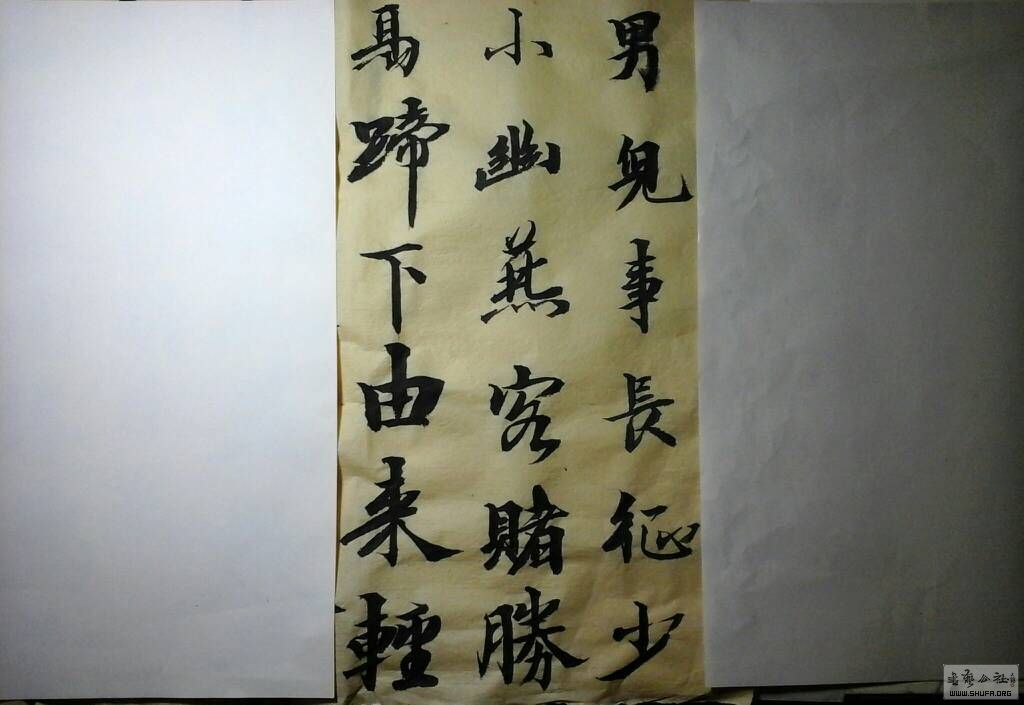 男兒事長征少
小幽燕客賭勝
馬蹄下由来輕
WWW.SHUFA.ORG